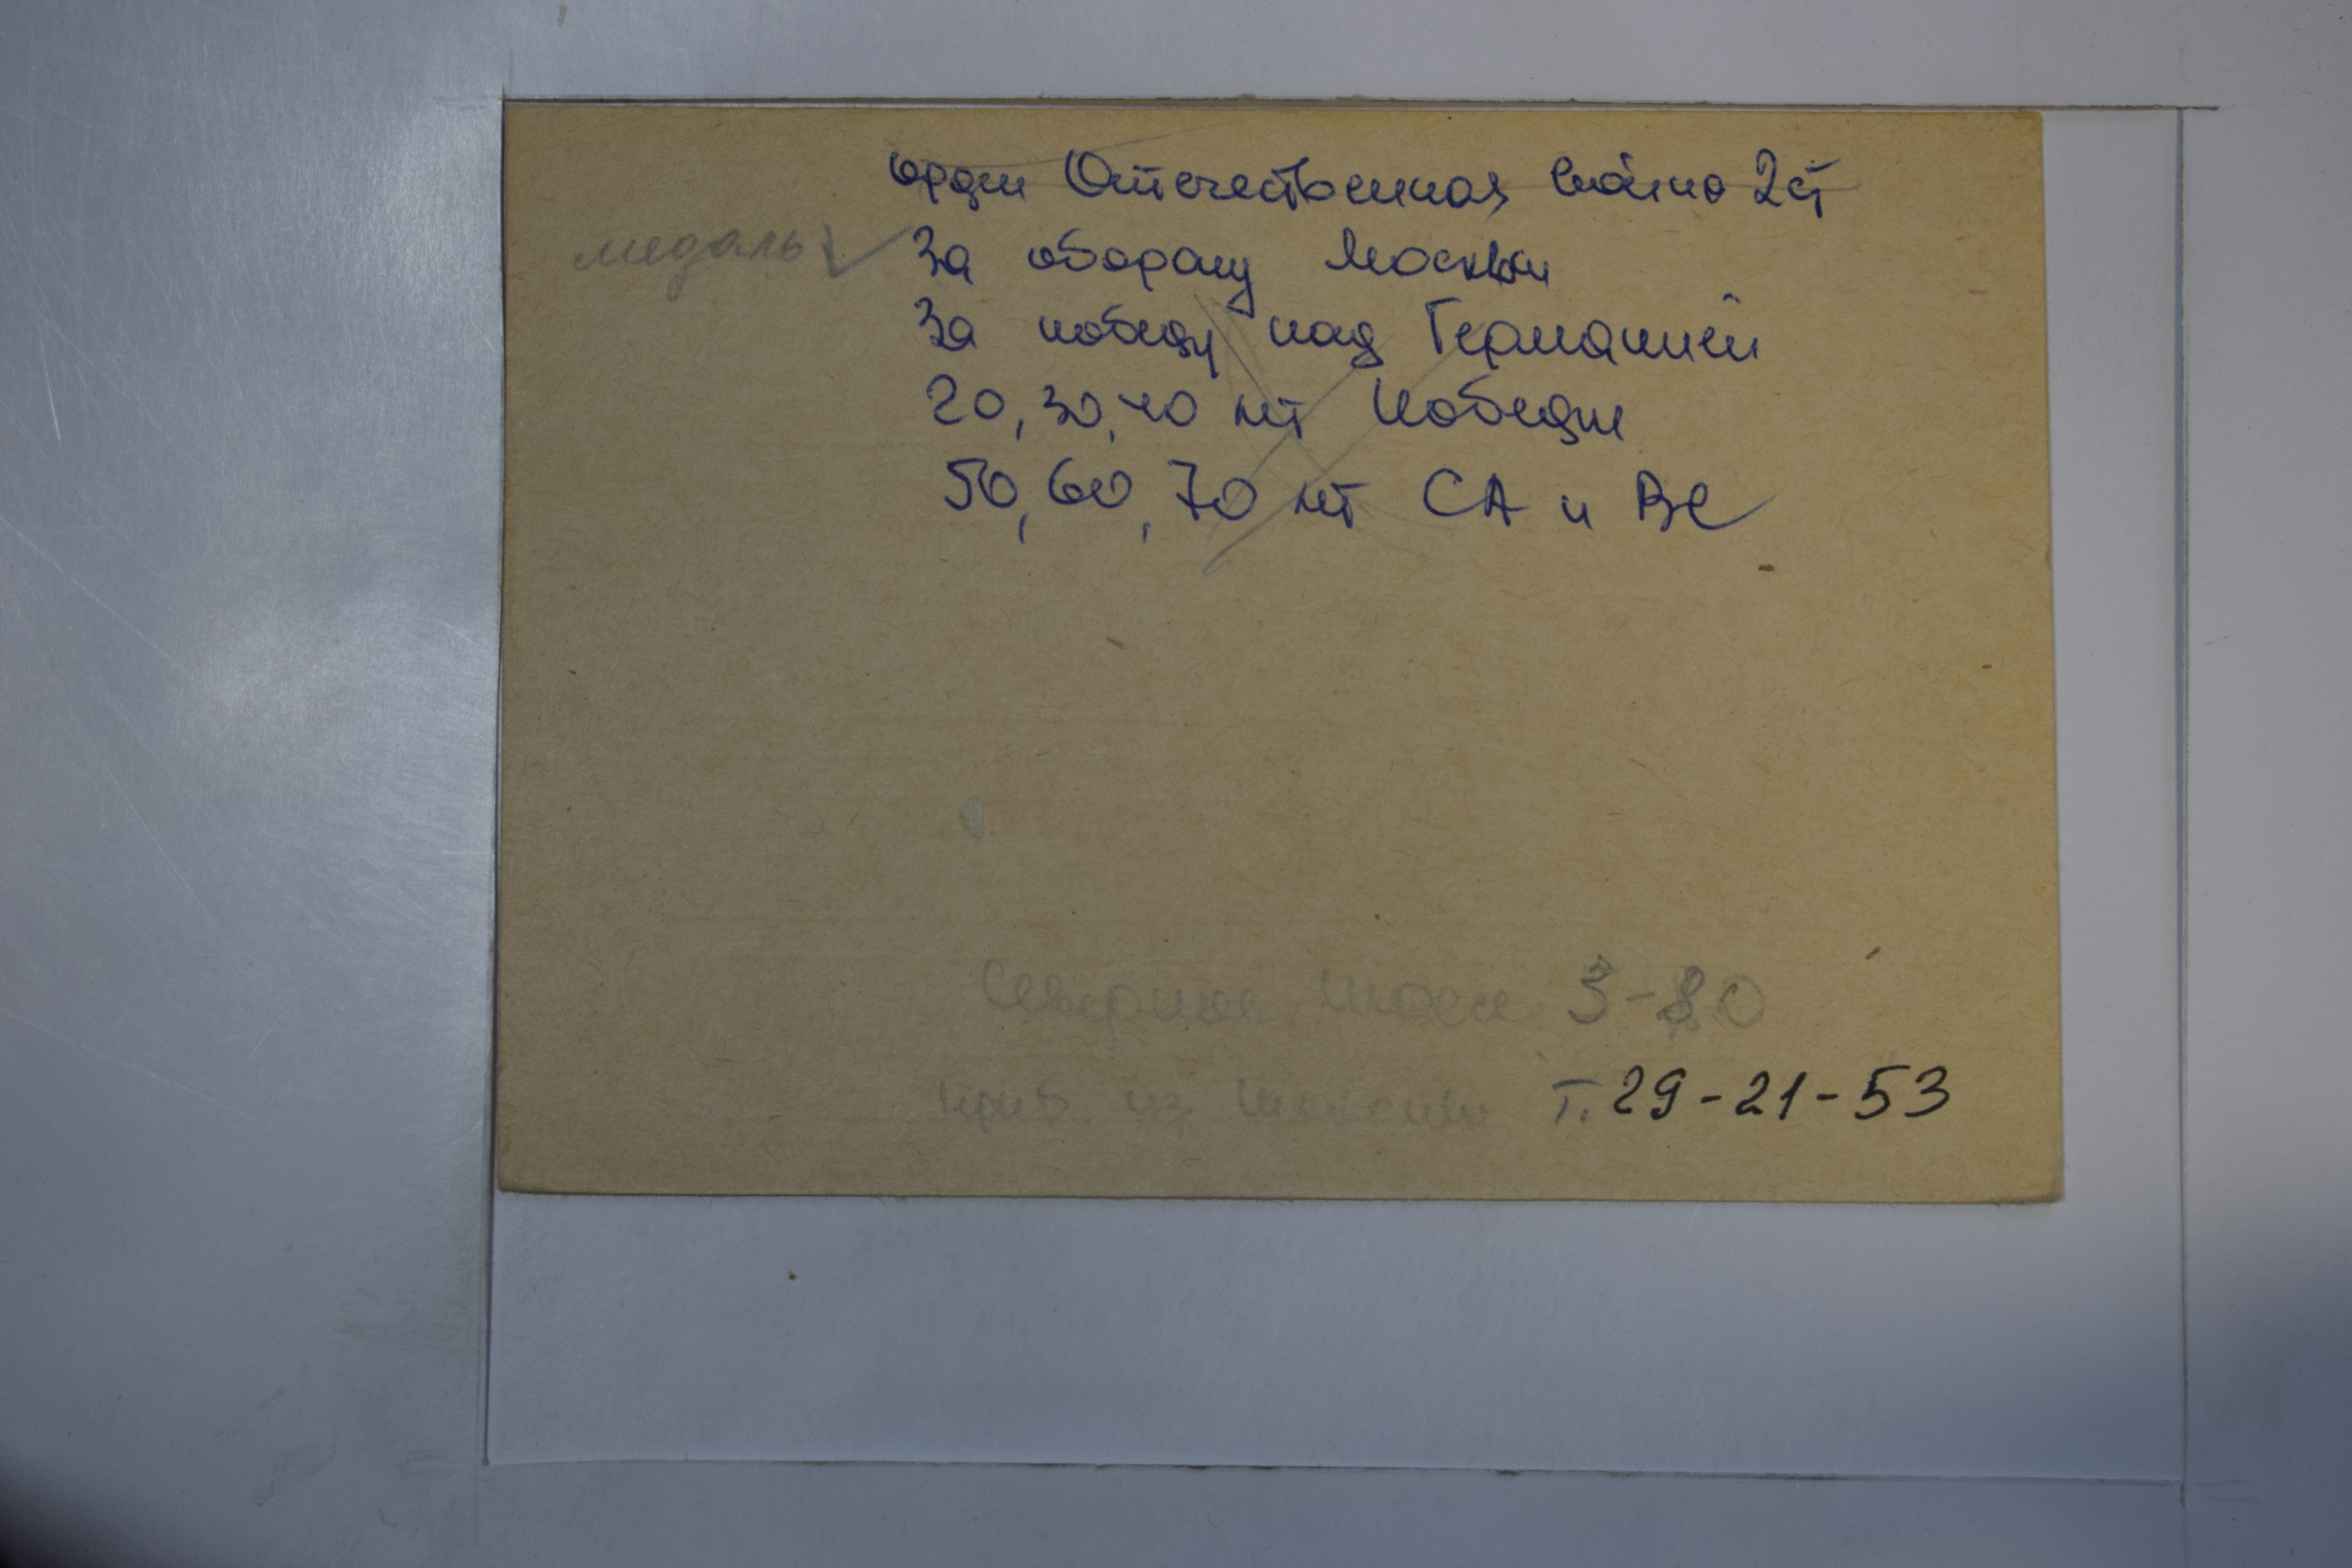 орден Отечественная война 2ст
медаль За оборону Москвы
За победу над Германией
20, 30, 40 лет Победы
50, 60, 70 лет СА и ВС
Северное шоссе 3-80
приб из т. 29-21-53